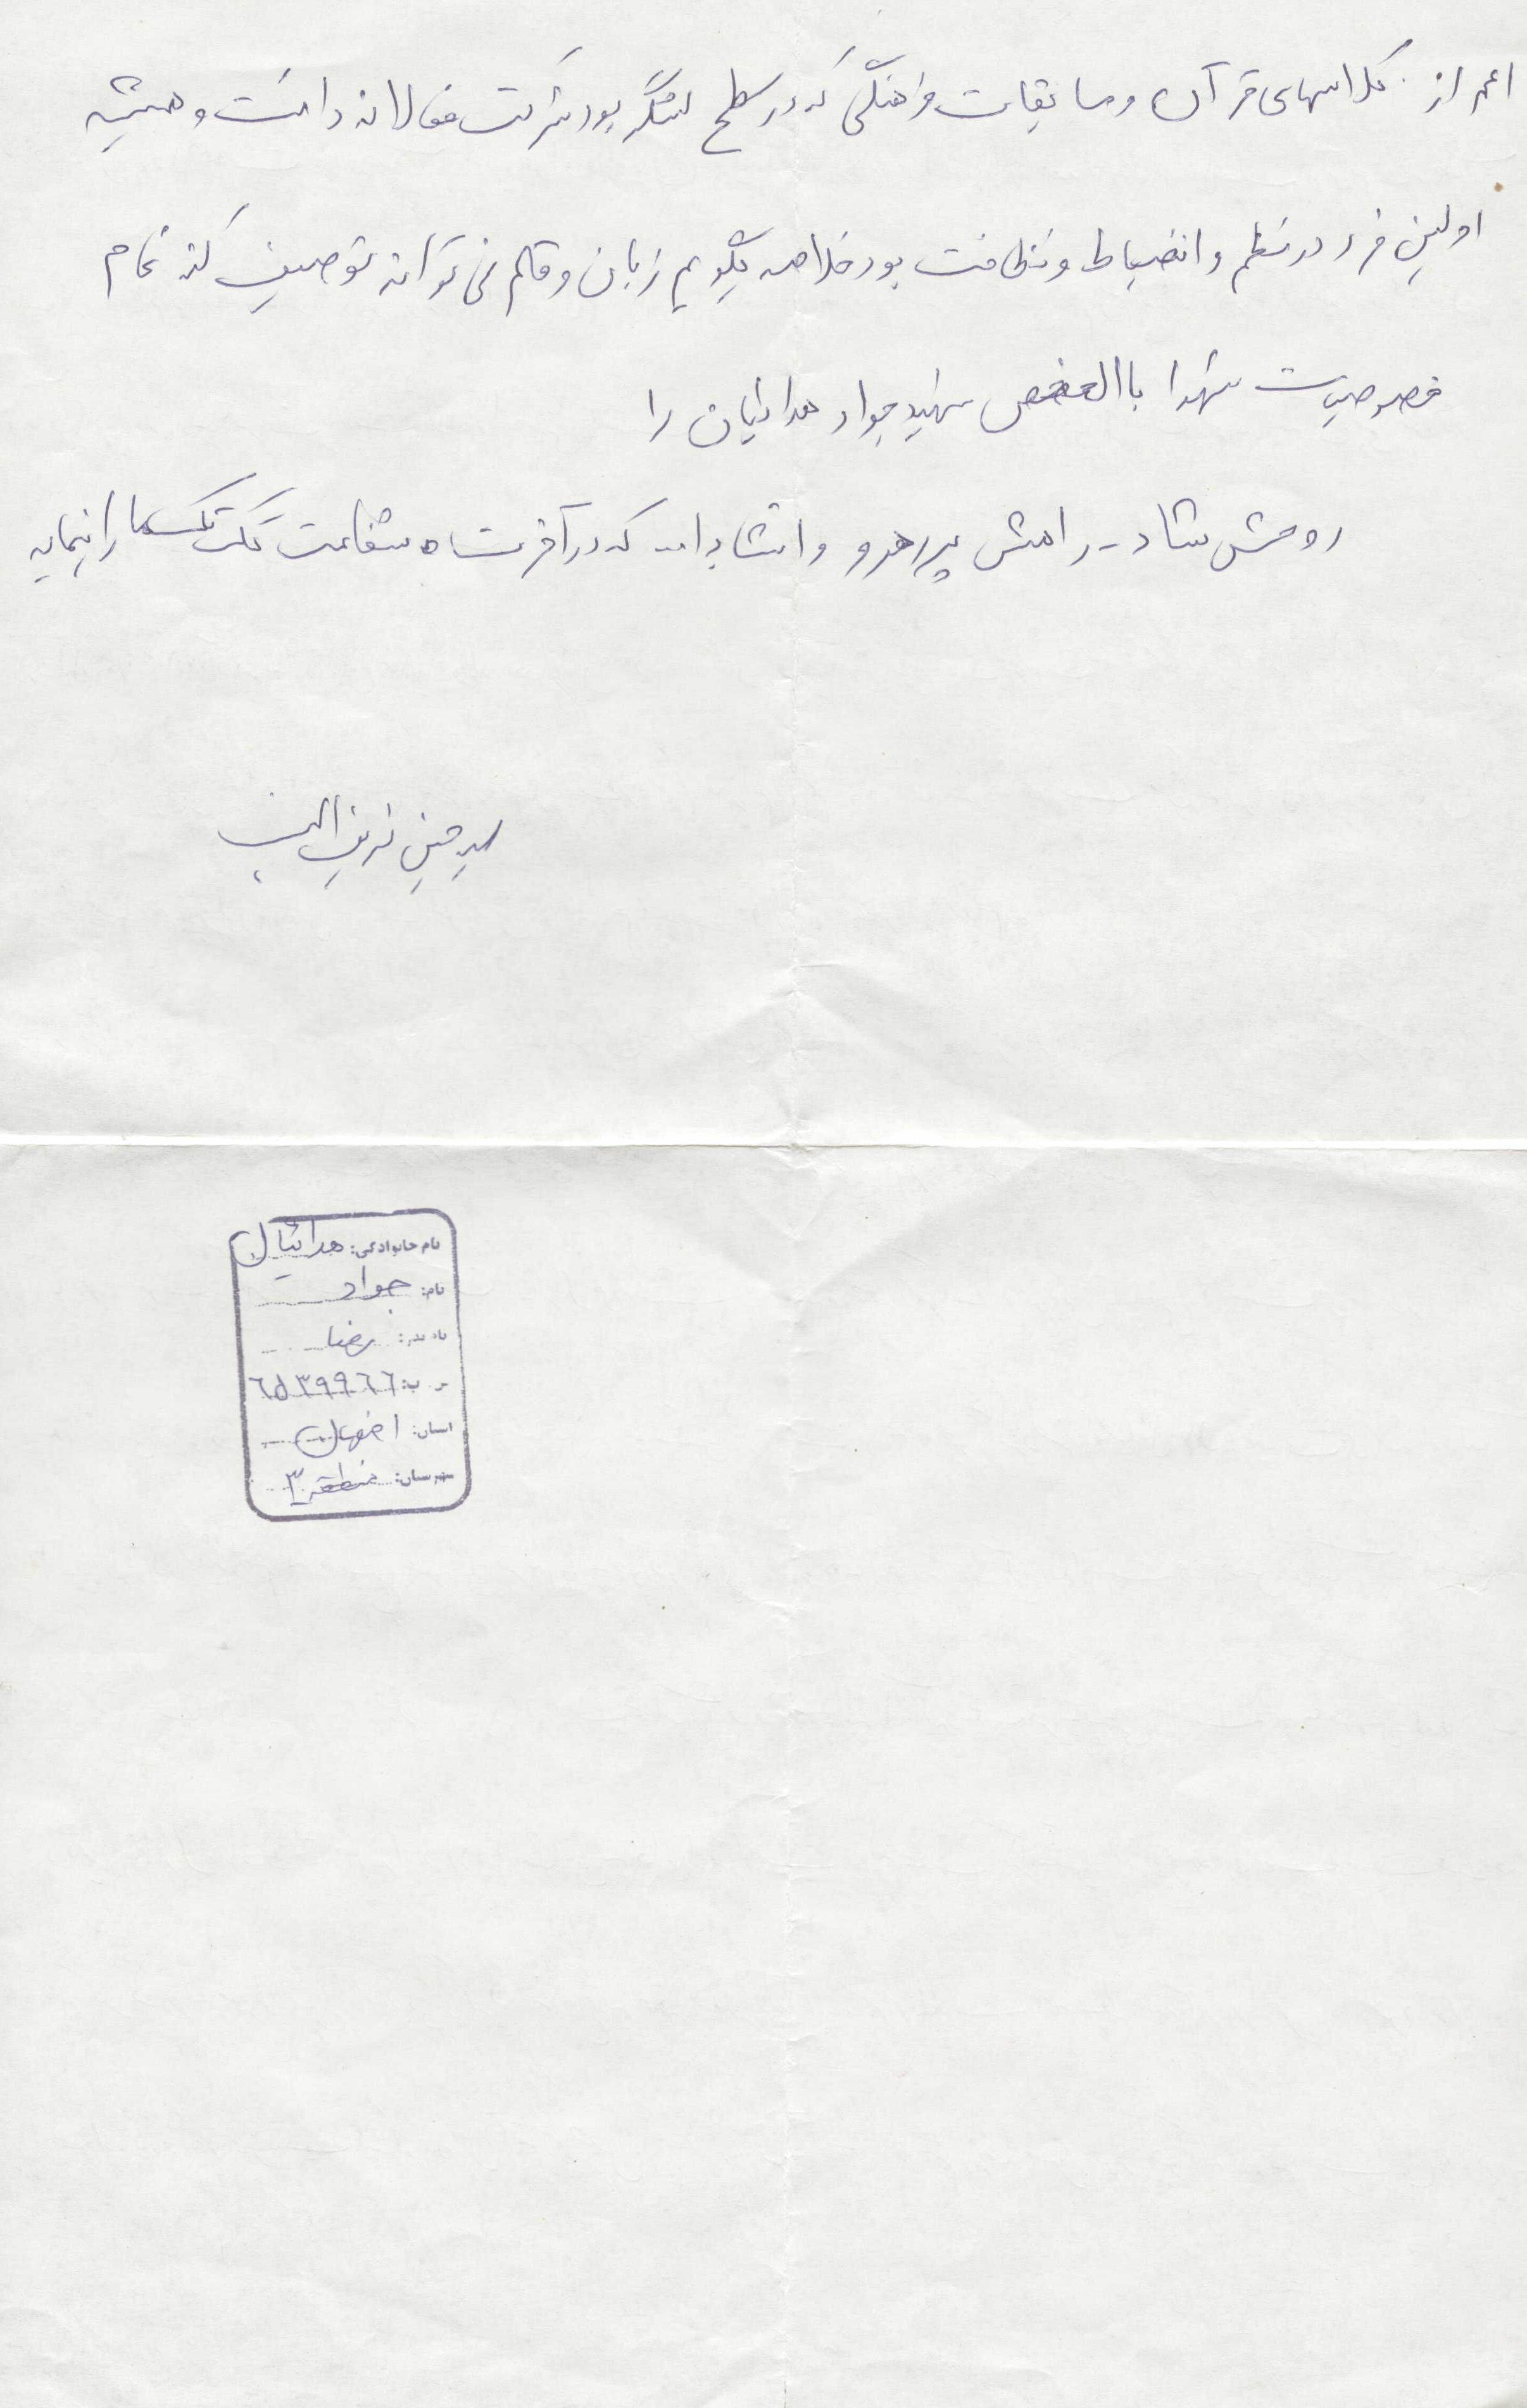 اعم از کلاسهای قرآن و مسابقات فرهنگی که در سطح لشگر بود شرکت فعالانه داشت و همیشه
اولین فرد در نظم و انضباط و نظافت بود خلاصه بگویم زبان و قلم نمی تواند توصیف کند تمام
خصوصیات شهدا باالخص شهید جواد هدائیان را
روحش شاد - راهش پر رهرو و انشااله که در آخرت شفاعت تک تک ما را بنماید
سید حسین
نام خانوادگی: هدائیان
نام: جواد
نام پدر: رضا
ک ب: ٦٥٣٩٩٦٦
استان: اصفهان
شهرستان: منطقه ٣